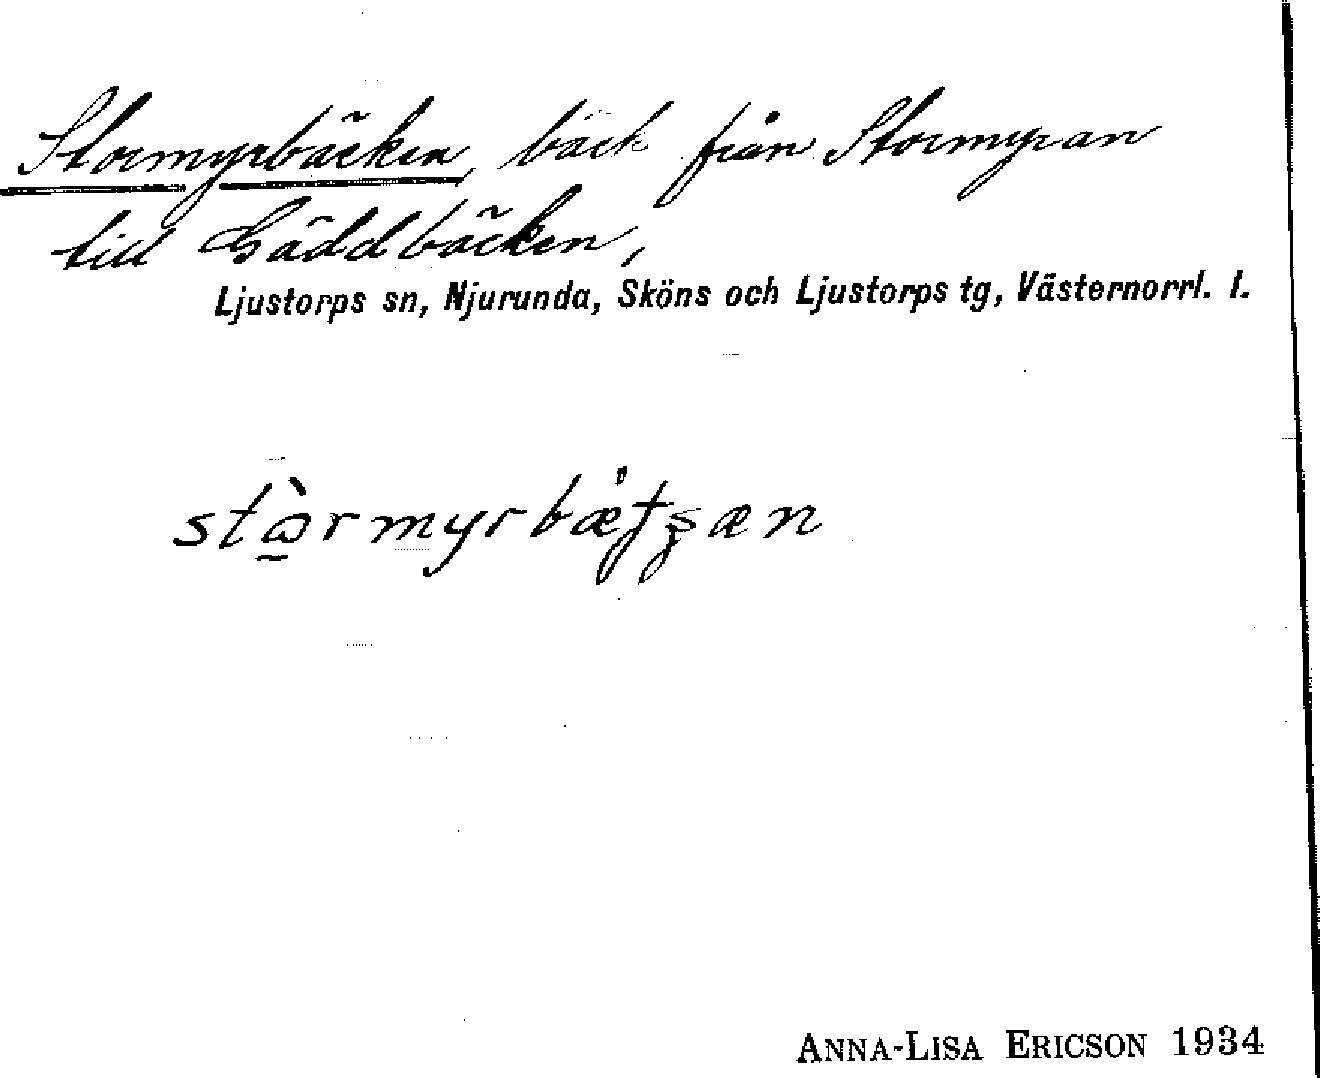 Stormyrbäcken, bäck från Stormyran
till Gäddbäcken,
Ljustorps sn, Njurunda, Sköns och Ljustorps tg, Västernorrl. l.
ANNA-LISA ERICSON 1934